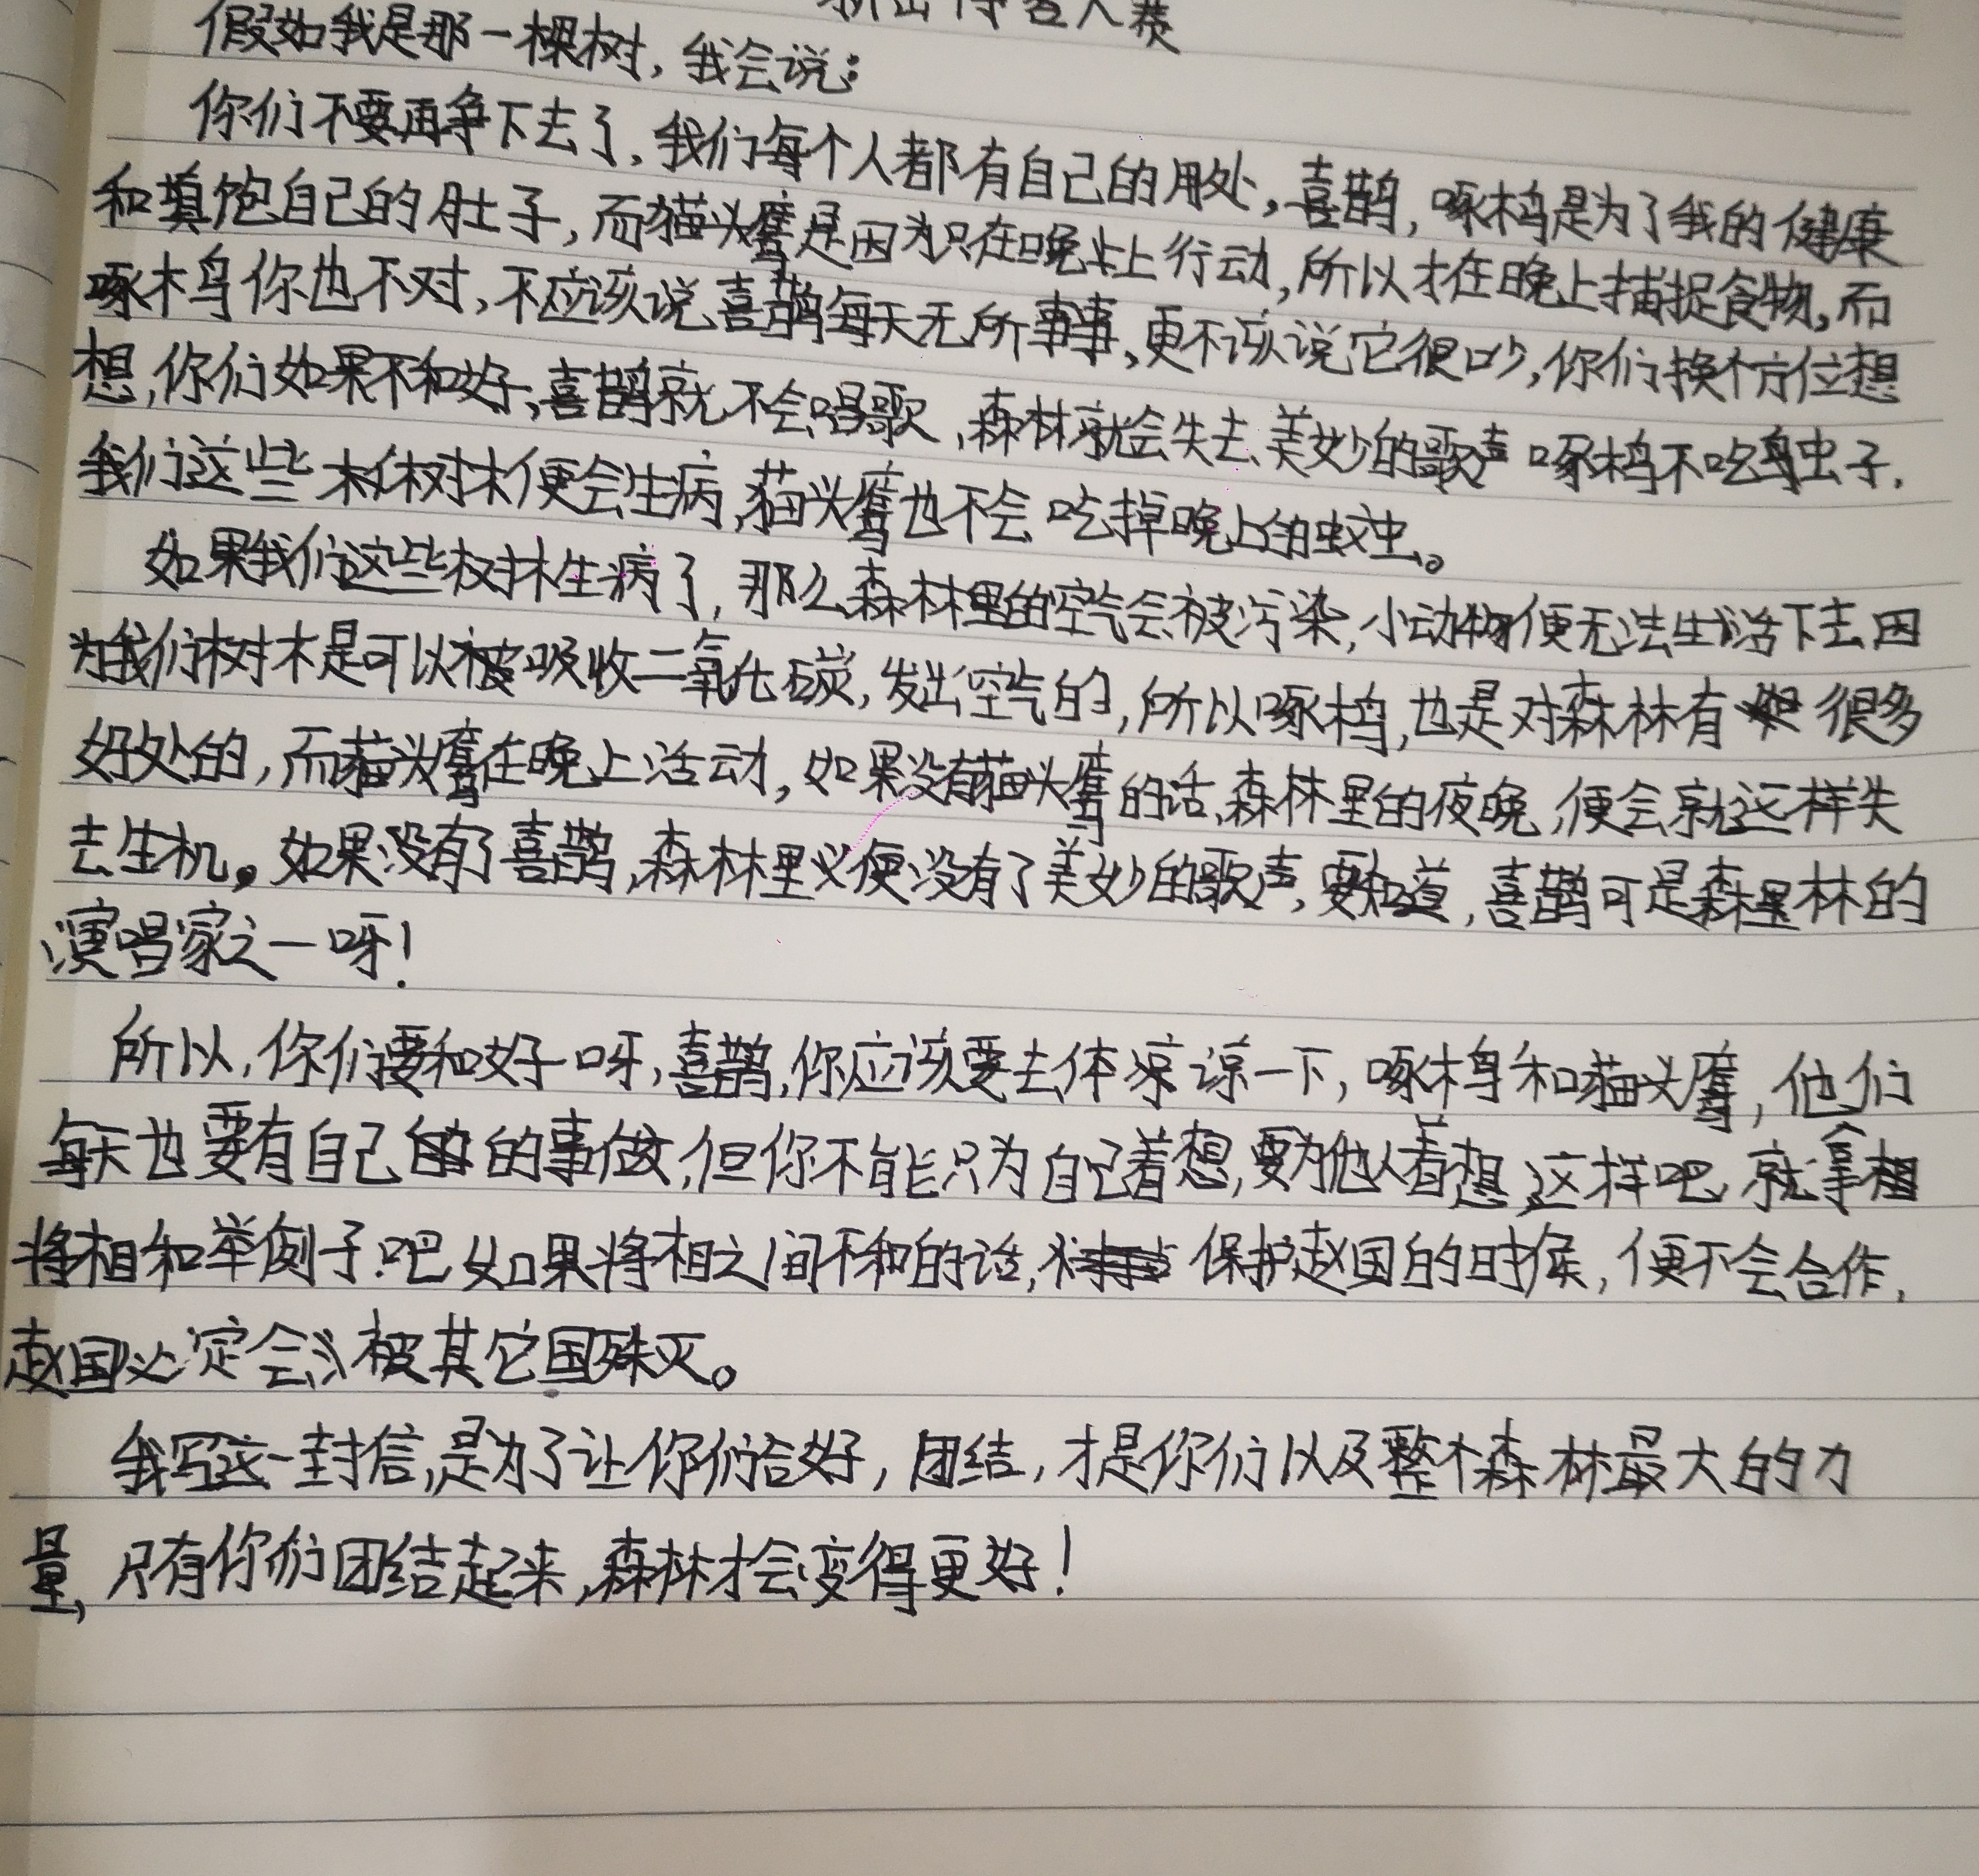 假如我是那一棵树，我会说：
你们不要再争下去了，我们每个人都有自己的用处，喜鹊，啄木鸟是为了我的健康
和填饱自己的肚子，而猫头鹰是因为只在晚上行动，所以才在晚上捕捉食物，而
啄木鸟你也不对，不应该说喜鹊每天无所事事，更不该说它很吵，你们换个方位想
想，你们如果不和好，喜鹊就不会唱歌，森林就会失去美妙的歌声啄木鸟不吃虫子，
我们这些树木便会生病，猫头鹰也不会吃掉晚上的蚊虫。
如果我们这些树林生病了，那么森林里的空气会被污染，小动物便无法生活下去因
为我们树木是可以吸收二氧化碳，发出空气的，所以啄木鸟，也是对森林有很多
好处的，而猫头鹰在晚上活动，如果没有猫头鹰的话，森林里的夜晚，便会就这样失
去生机。如果没有了喜鹊，森林里便没有了美妙的歌声，要知道，喜鹊可是森林的
演唱家之一呀！
所以，你们要和好呀，喜鹊，你应该要去体谅一下，啄木鸟和猫头鹰，他们
每天也要有自己的事做，但你不能只为自己着想，要为他人着想，这样吧，就拿
将相和举例子吧如果将相之间不和的话，保护赵国的时候，便不会合作，
赵国必定会被其它国殊灭。
我写这一封信，是为了让你们合好，团结，才是你们以及整个森林最大的力
量，只有你们团结起来，森林才会变得更好！